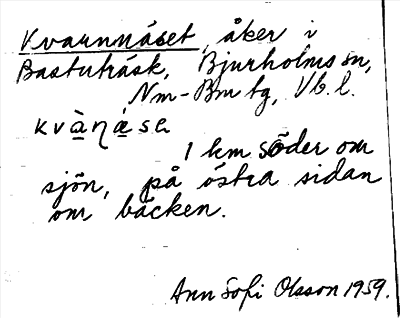 Kvarnnäset, åker i
Bastuträsk, Bjurholms sn,
Nm-Bm tg, Vb. l.
kvà̲ŋæ̲sɐ
1 km söder om
sjön, på östra sidan
om bäcken.
Ann Sofi Olsson 1959.